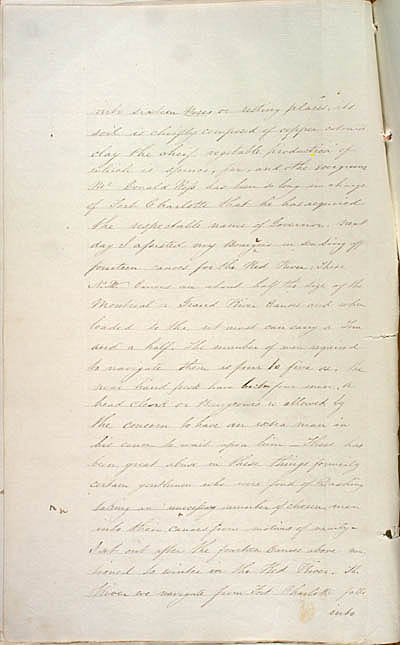 into sixteen Poses or resting places, its
soil is chiefly composed of copper colour'd
clay the chief vegetable production of
which is spruce, fir, and the evergreens
Mr. Donald Ross has been so long in charge
of Fort Charlotte that he has acquired
the respectable name of Governor. Next
day I assisted my Bourgeois in sending off
fourteen canoes for the Red River. These
North Canoes are about half the size of the
Montreal or Grand River Canoes and when
loaded to the utmost can carry a Ton
and a half. The number of men required
to navigate them is four to five or. the
have four men. A
head clerk or Bourgeois is allowed by
the concern to have an extra man in
his canoe to wait upon him — There has
been great abuse in these things formerly
certain gentlemen who were fond of
taking an unnecessary number of chosen men
into their canoes from motives of vanity —
I set out after the fourteen Canoes above men
tioned to winter in the Red River. The
River we navigate from Fort Charlotte falls
into